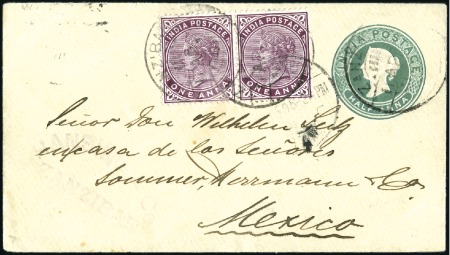 INDIA POSTAGE INDIA POSTAGE
ONE ANNA ONE ANNA
INDIA POSTAGE
HALF ANNA
ZANZIBAR
Señor Don Wilhelm
en casa de los Señores
Sommer, Herrmann & Co.
Mexico